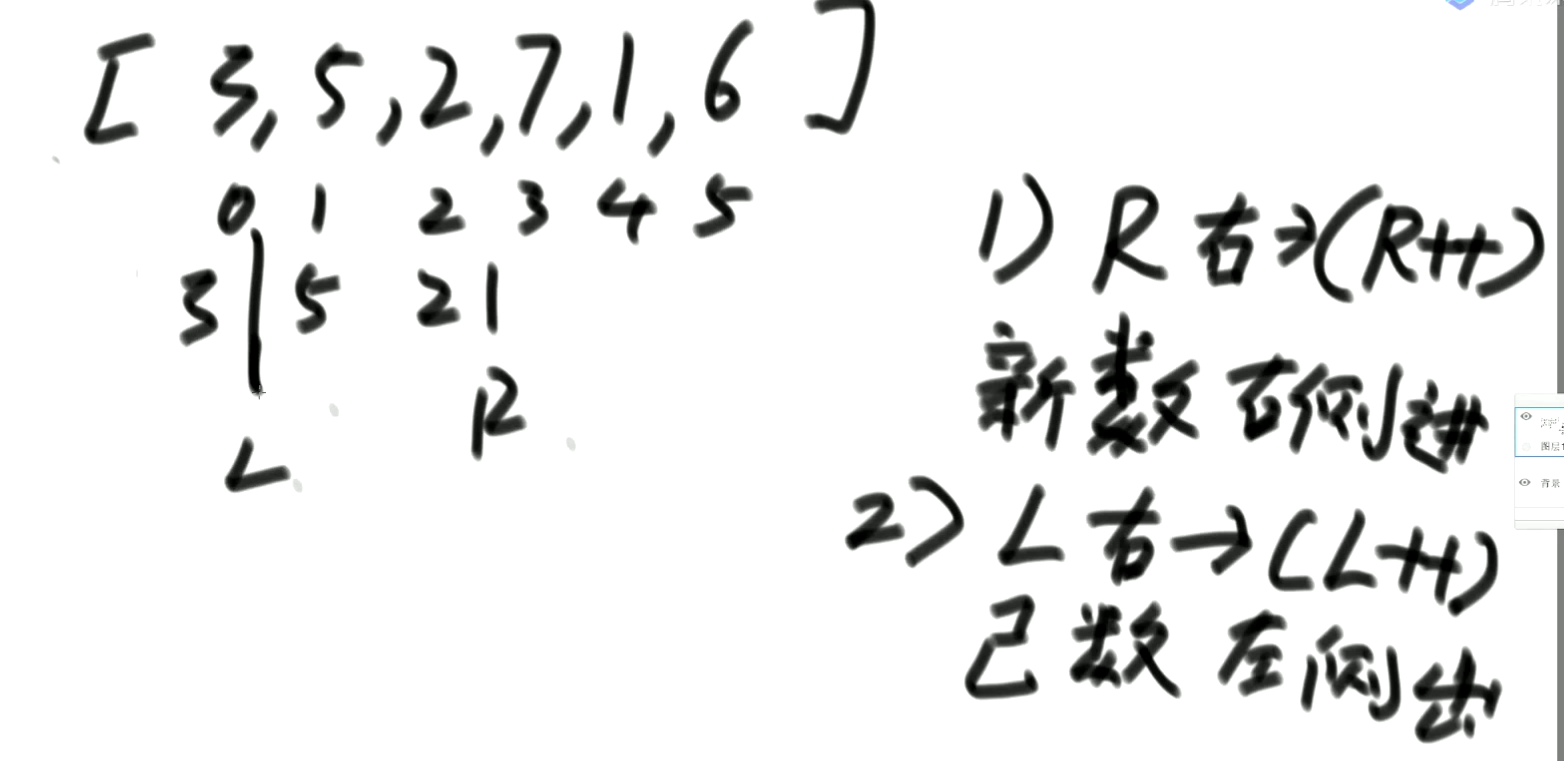 [ 3, 5, 2, 7, 1, 6 ]
0 1 2 3 4 5
3 | 5 2 |
L R
1) R 右→(R++)
新数右侧进
2) L 右→(L++)
已数左侧出
图层1
背景